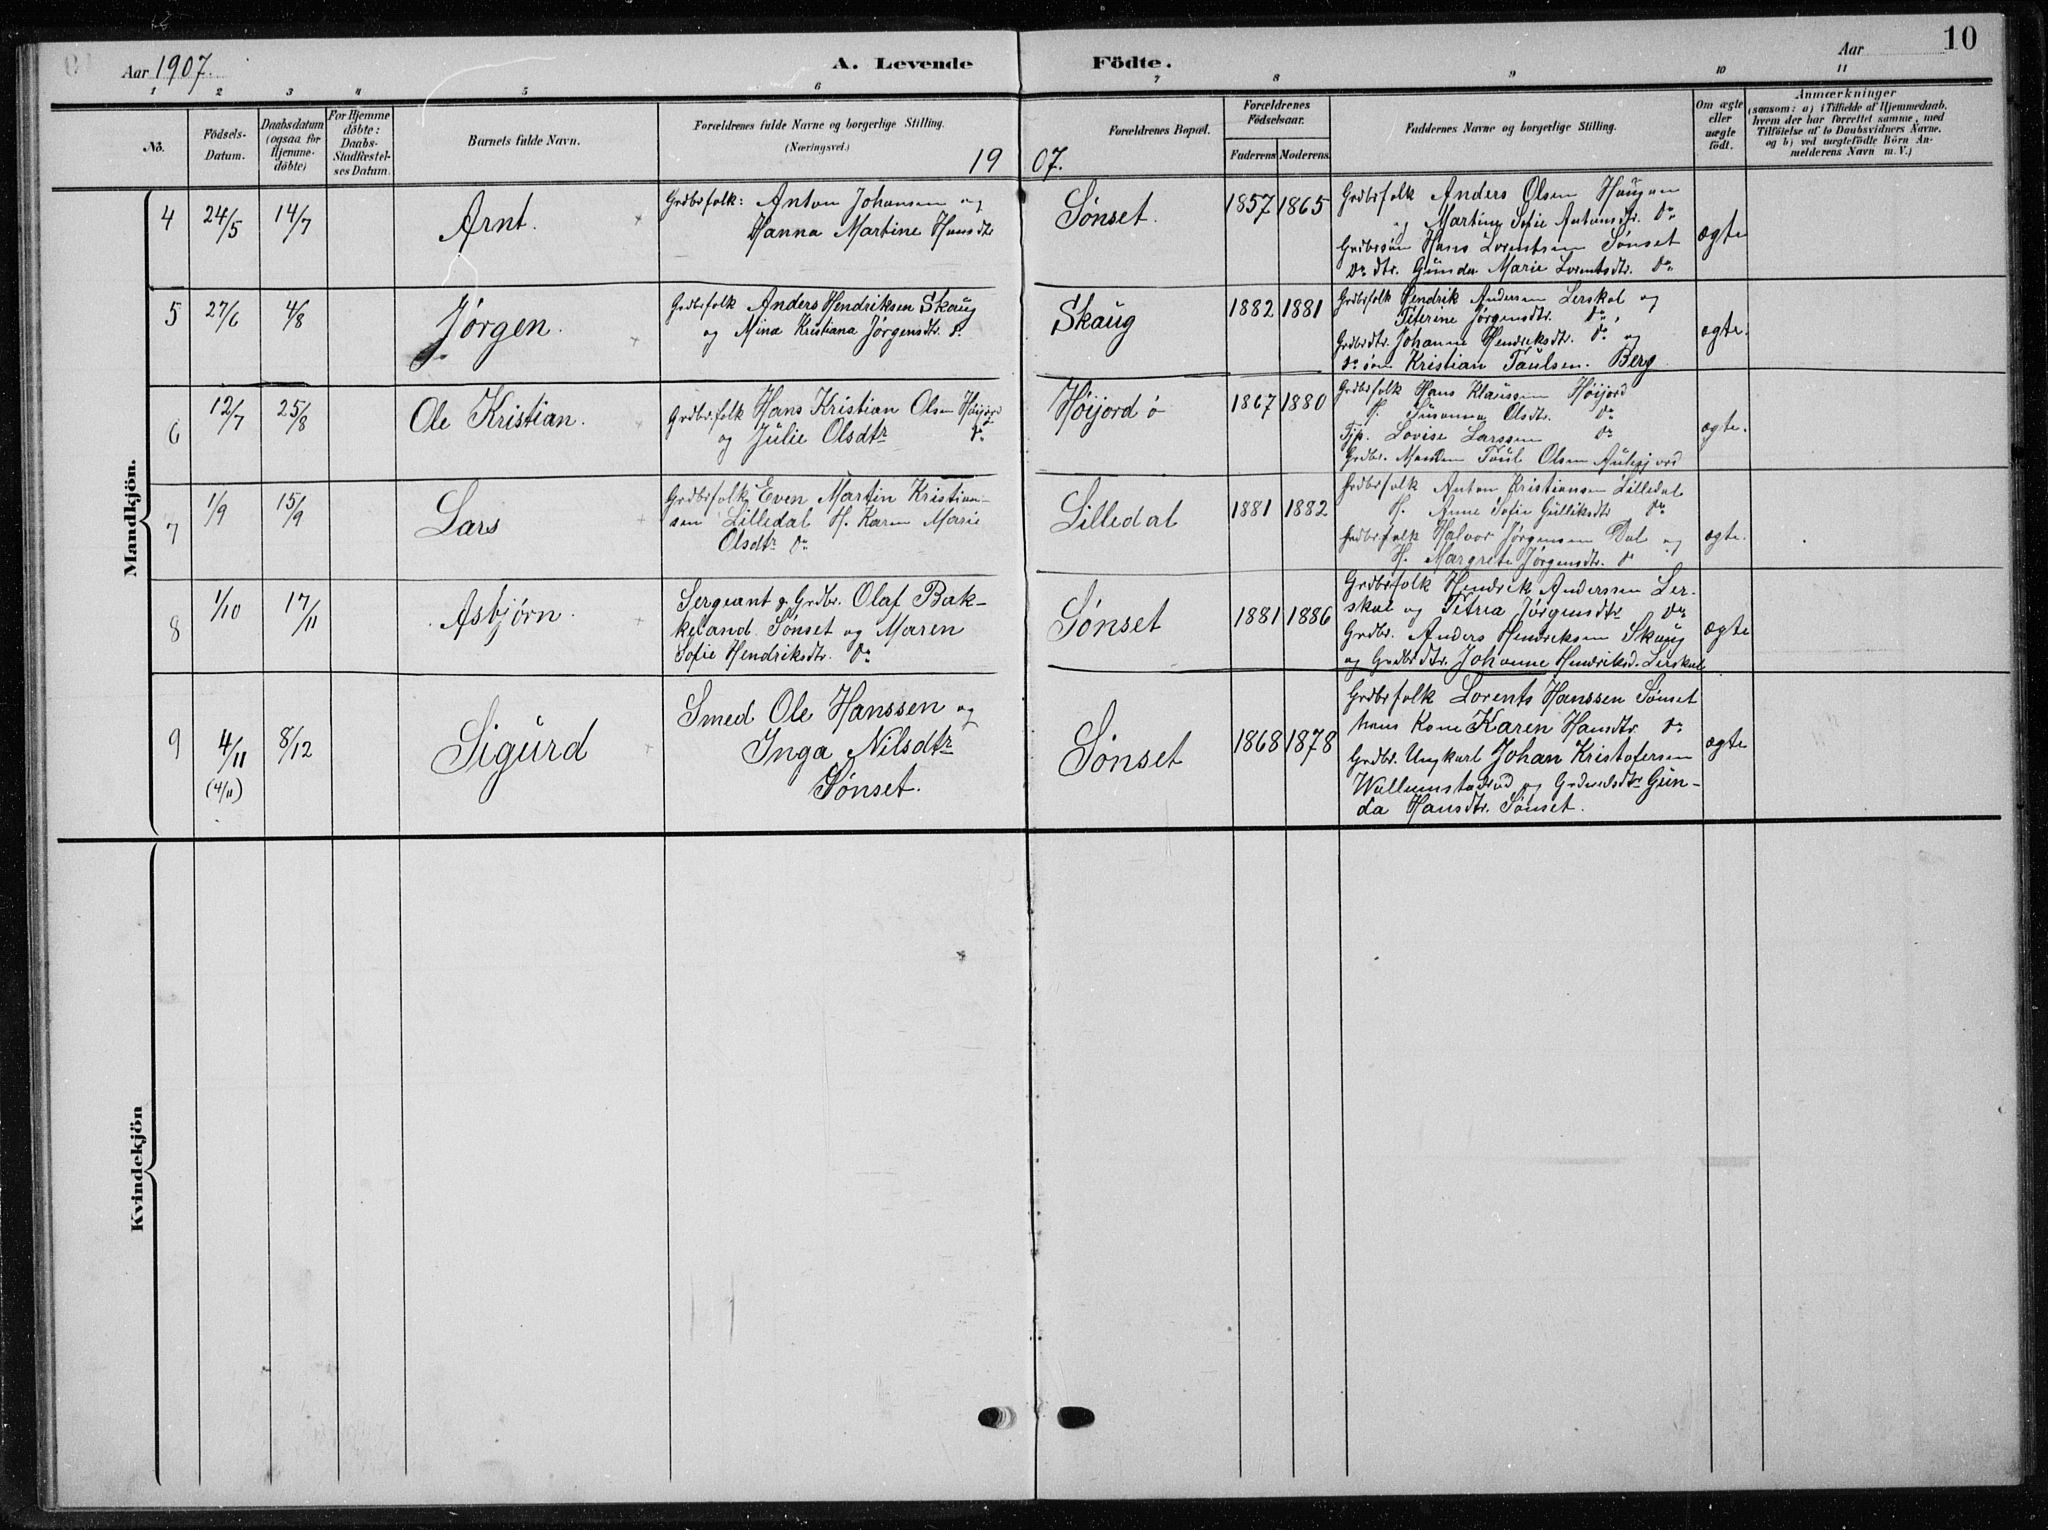 Aar 1907.
A. Levende
Födte.
Aar
10
1 2 3 4 5 6 7 8 9 10 11
No.
Födsels-
Datum.
Daabsdatum
(ogsaa for
Hjemme-
döbte)
For Hjemme
döbte:
Daabs-
Stadfæstel-
ses Datum.
Barnets fulde Navn.
Forældrenes fulde Navne og borgerlige Stilling.
(Næringsvei.)
19 07.
Forældrenes Bopæl.
Forældrenes
Födselsaar.
Faderens Moderens
Faddernes Navne og borgerlige Stilling.
Om ægte
eller
uægte
födt.
Anmærkninger
(saasom: a) i Tilfælde af Hjemmedaab,
hvem der har forrettet samme, med
Tilföielse af to Daabsvidners Navne.
og b) ved uægtefödte Börn An-
melderens Navn m. V.)
Mandkjön.
4 24/5 14/7
Arnt.
Grdbrfolk: Anton Johansen og
Hanna Martine Hansdtr
Sønset.
1857 1865
Grdbrfolk Anders Olsen Haugan
og Martine Sofie Antonsdtr. do
Grdbrsøn Hans Lorentsen Sønset
Do dtr. Gunda Marie Lorentsdtr. do
ægte
5 27/6 4/8
Jørgen.
Grdbrfolk Anders Hendriksen Skaug
og Mina Kristiana Jørgensdtr. do
Skaug
1882 1881
Grdbrfolk Hendrik Andersen Lerskal og
Peterine Jørgensdtr. do,
Grdbrdtr. Johanne Hendriksdtr. do og
do søn Kristian Paulsen. Berg
ægte.
6 12/7 25/8
Ole Kristian.
Grdbr.folk Hans Kristian Olsen Høijord
og Julie Olsdtr do
Høijord ø
1867 1880
Grdbrfolk Hans Klaussen Høijord
H. Susanna Olsdtr. do
Tjp. Lovise Larssen do
Grdbr. Paul Olsen
ægte.
7 1/9 15/9
Lars
Grdbrfolk Even Martin Kristian-
sen Lilledal H. Karen Marie
Olsdtr do
Lilledal
1881 1882
Grdbrfolk Anton Kristiansen Lilledal
H. Anne Sofie Gulliksdtr do
Grdbrfolk Halvor Jørgensen Dal og
H. Margrete Jørgensdtr. do
ægte.
8 1/10 17/11
Asbjørn.
Sergeant & Grdbr. Olaf Bak-
keland Sønset og Maren
Sofie Hendriksdtr. do
Sønset
1881 1886
Grdbrfolk Hendrik Anderssen Ler-
skal og Petrea Jørgensdtr do
Grdbr. Anders Hendriksen Skaug
og Grdbrdtr. Johanne Hendriksd. Lerskal
ægte
9 4/11 8/12
(4/11)
Sigurd
Smed Ole Hanssen og
Inga Nilsdtr
Sønset.
Sønset
1868 1878
Grdbrfolk Lorents Hanssen Sønset
hans Kone Karen Hansdtr. do
Grdbr. Ungkarl Johan Kristofersen
Wullumstadrud og Gun-
da Hansdtr. Sønset.
ægte
Kvindekjön